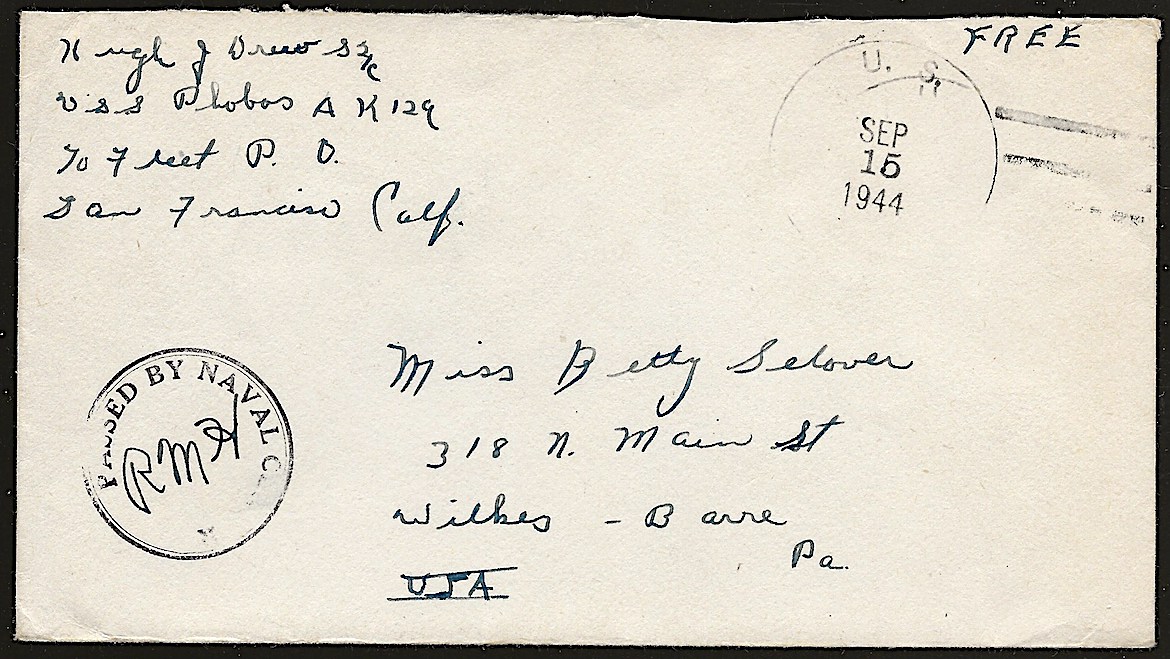 Hugh J Drew S2/c
USS Phobos AK 129
℅ Fleet P. O.
San Francisco Calf.
FREE
U. S.
SEP
15
1944
PASSED BY NAVAL C
RMH
Miss Betty Selover
318 N. Main St
Wilkes - Barre
Pa.
USA